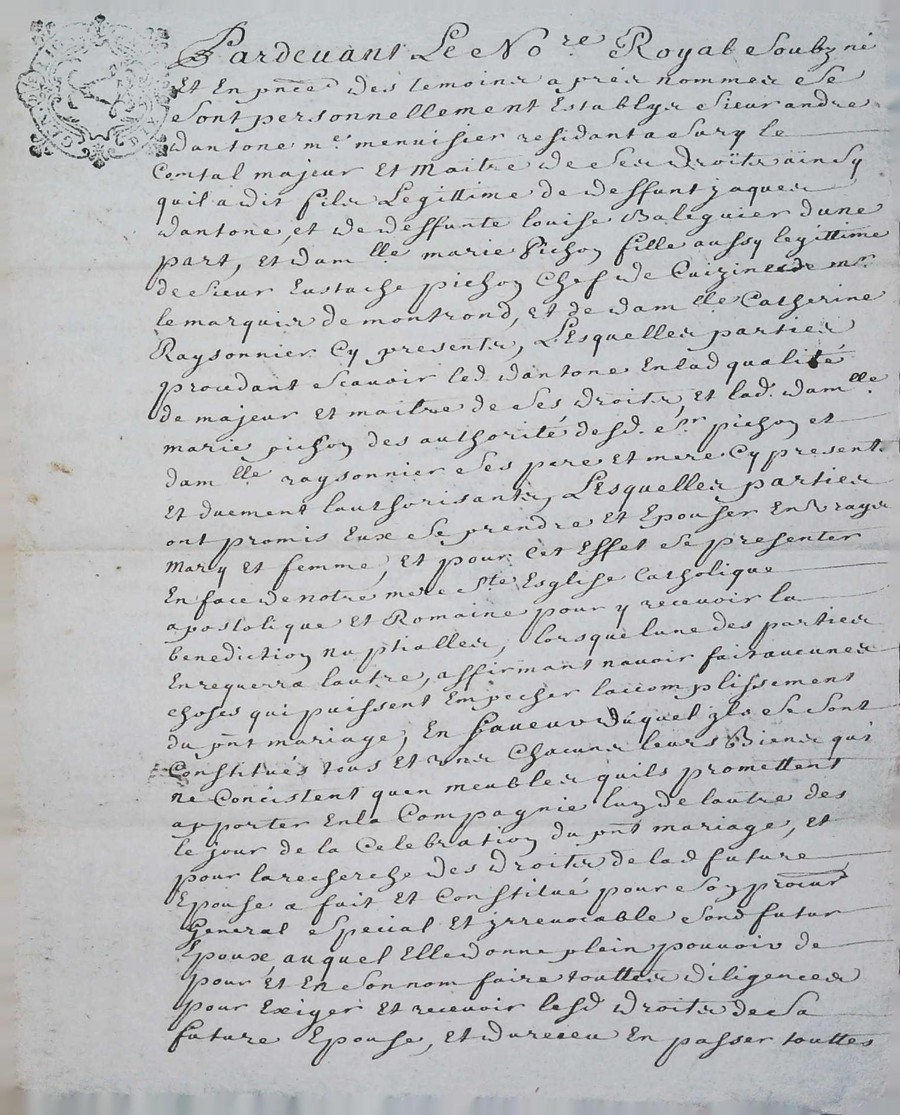 Pardevant Le No.re Royal Soubz.né
Et En pnce Des temoins aprés nommés Se
Sont personnellement Establys Sieur andre
dantone me menuisier residant a Sury le
Comtal majeur Et Maitre de Ses droits ainsy
quil a dit fils Legittime de deffunt jaques
dantone, et de deffunte louise Baleguier dune
part, Et damlle marie Pichon fille aussy legittime
de Sieur Eustache pichon Chef de Cuizine de mr
le marquis de montrond, Et de damlle Catherine
Raysonnier Cy presents, Lesquelles parties
procedant Scavoir led. dantone En lad qualité
de majeur Et maitre de Ses droits Et lad. damlle
marie pichon des authorité desd. Sr pichon et
damlle raysonnier Ses pere Et mere Cy present
Et duement lauthorisants, Lesquelles parties
ont promis Eux Se prendre Et Epouser En vrays
Mary Et femme, Et pour Cet Effet Se presenter
En face de notre mere Ste Esglise Catholique
apostolique Et Romaine pour y recevoir la
benediction nuptialle, lorsque lune des parties
En requerra lautre, affirmant navoir fait aucunes
choses qui puissent Empecher laccomplissement
du pnt mariage; En faveur duquel jls Se Sont
Constitués tous Et uns Chacuns leurs Biens qui
ne Concistent quen meubles quils promettent
apporter En la Compagnie lun de lautre des
le jour de la Celebration du pnt mariage, Et
pour la recherche des droits de lad future
Epouse a fait Et Constitué pour Son procur
General Special Et jrrevocable Sond futur
Epoux auquel Elle donne plein pouvoir de
pour Et En Son nom faire touttes diligences
pour Exiger Et recevoir lesd droits de Sa
future Epouse, Et du receu En passer touttes